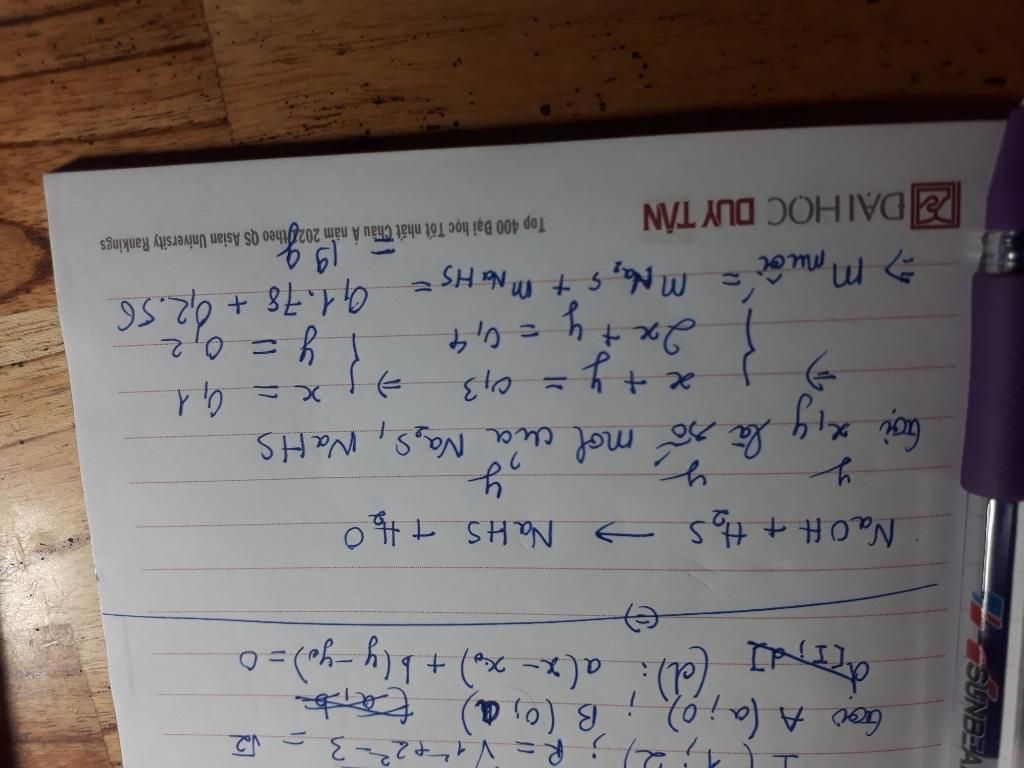 I(1; 2) ; R = √1²+2²-3 = √2
Gọi A(a; 0) ; B(0; a)
d[I; d] (d): a(x-x₀) + b(y-y₀) = 0
(=)
NaOH + H₂S → NaHS + H₂O
y y y
Gọi x, y là số mol của Na₂S, NaHS
⇒ { x + y = 0,3 ⇒ { x = 0,1
2x + y = 0,4 y = 0,2
⇒ m muối = mNa₂S + mNaHS = 0,1.78 + 0,2.56
= 19 g
ĐẠI HỌC DUY TÂN
Top 400 Đại học Tốt nhất Châu Á năm 2022 theo QS Asian University Rankings
SUNBEA